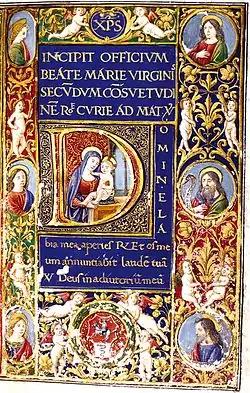 XPS
INCIPIT OFFICIVM
BEATE MARIE VIRGINI
SECVDVM CŌSVETVDI
NĒ RE CVRIE AD MAT
D
OMINE LA
bia mea aperies R. Et os me
um annunciabit laudē tuā
V Deus in adiutoriū meū